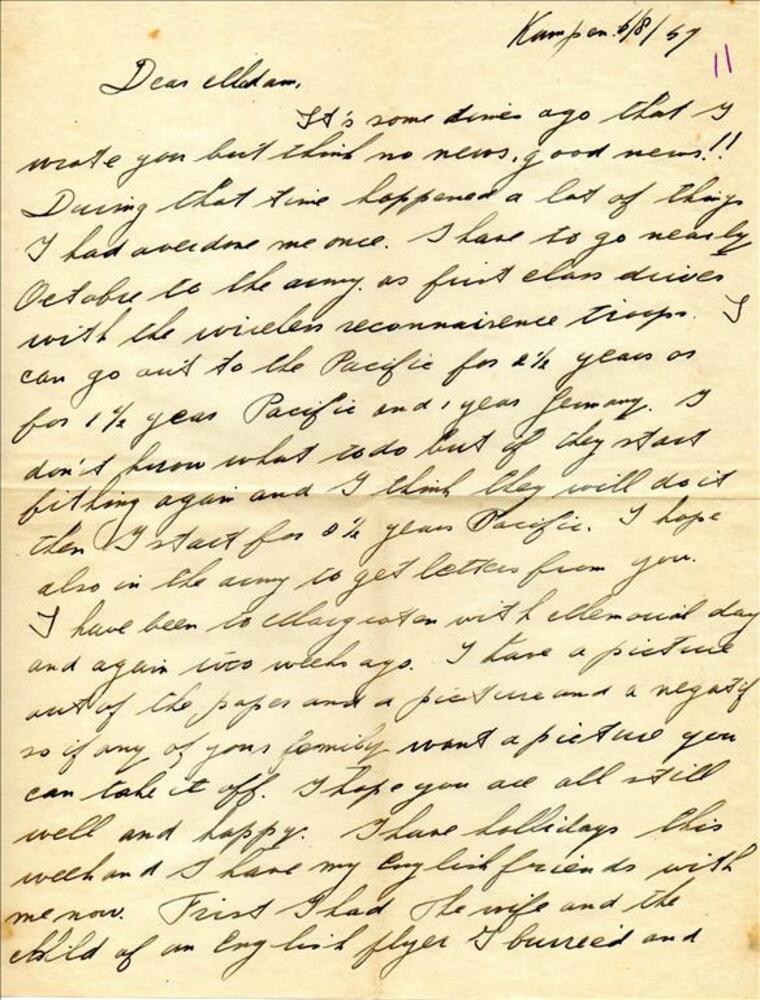 Kampen 6/8/47
11
Dear Madam,
It's some times ago that I
wrote you but think no news, good news!!
During that time happened a lot of things
I had overdone me once. I have to go nearly
Octobre to the army as first class driver
with the wireless reconnairence troops. I
can go out to the Pacific for 2½ years or
for 1½ year Pacific and 1 year Jermany. I
don't know what todo but if they start
fithing again and I think they will do it
then I start for 2½ years Pacific. I hope
also in the army to get letters from you.
I have been to Margraten with Memorial day
and again two weeks ago. I have a picture
out of the paper and a picture and a negatif
so if any of your femily want a picture you
can take it off. I hope you are all still
well and happy. I have hollidays this
week and I have my English friends with
me now. Frist I had the wife and the
child of an English flyer I burreed and